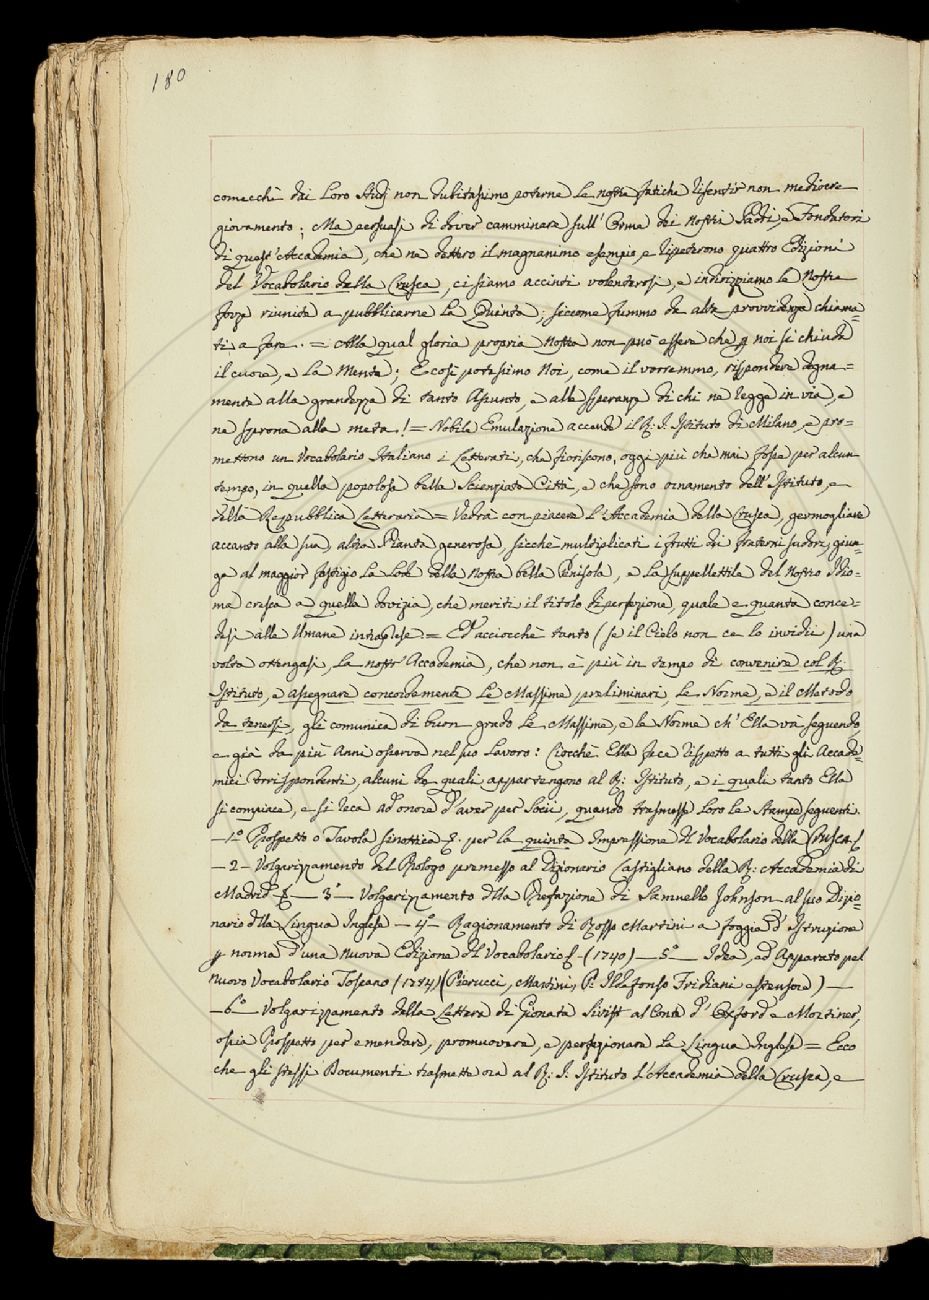 180
comecchè dai Loro Studj non dubitassimo poterne le nostre fatiche risentir non mediocre
giovamento; Ma persuasi di dover camminare sull'Orme dei Nostri Padri, e Fondatori
di quest'Accademia, che ne dettero il magnanimo esempio, e ripeterono quattro Edizioni
del Vocabolario della Crusca, ci siamo accinti volenterosi, e indirizziamo le Nostre
forze riunite a pubblicarne la Quinta; siccome fummo da alta provvidenza chiama=
ti a fare. = Alla qual gloria propria nostra non può essere che p noi si chiuda
il cuore, e la Mente; E così potessimo Noi, come il vorremmo, rispondere degna=
mente alla grandezza di tanto Assunto, e alle speranze di chi ne regge in via, e
ne sprona alla meta! = Nobile Emulazione accende il R: I. Istituto di Milano, e pro=
mettono un Vocabolario Italiano i Letterati, che fioriscono, oggi più che mai fosse per alcun
tempo, in quella popolosa bella Scienziata Città, e che sono ornamento dell'Istituto, e
della Repubblica Letteraria = Vedrà con piacere L'Accademia della Crusca, germogliare
accanto alla sua, altra Pianta generosa, sicchè multiplicati i frutti dei fraterni sudori, giun=
ga al maggior fastigio la Lode della Nostra bella Penisola, e la suppellettile del Nostro Idio=
ma cresca a quella dovizia, che meriti il titolo di perfezione, quale e quanta conce=
desi alle Umane intraprese = Ed acciocchè tanto (se il Cielo non ce lo invidii) una
volta ottengasi, la nostr'Accademia, che non è più in tempo di convenire col R:
Istituto, e assegnare concordemente le Massime preliminari, le Norme, e il Metodo
da tenersi, gli comunica di buon grado le Massime, e le Norme ch'Ella va seguendo,
e già da più Anni osserva nel suo Lavoro: Ciocchè Ella fece rispetto a tutti gli Accade=
mici Corrispondenti, alcuni de quali appartengono al R: Istituto, e i quali tanto Ella
si compiace, e si reca ad onore d'aver per Socii, quando trasmesse Loro le Stampe seguenti.
— 1.º Prospetto o Tavola sinottica & per la quinta Impressione del Vocabolario della Crusca &
— 2 — Volgarizzamento del Prologo premesso al Dizionario Castigliano della R: Accademia di
Madrid & — 3º — Volgarizzamento della Prefazione di Samuello Johnson al suo Dizio=
nario della Lingua Inglese — 4º — Ragionamento di Rosso Martini a foggia d'Istruzione
p norma d'una nuova Edizione del Vocabolario & — (1740) — 5º — Idea, ed Apparato pel
nuovo Vocabolario Toscano (1784) (Pierucci, Martini, P: Ildefonso Fridiani estensore) —
— 6º — Volgarizzamento della Lettera di Gionata Swift al Conte d'Oxford e Mortimer,
ossia Prospetto per emendare, promuovere, e perfezionare la Lingua Inglese = Ecco
che gli stessi Documenti trasmette ora al R: I. Istituto L'Accademia della Crusca, e